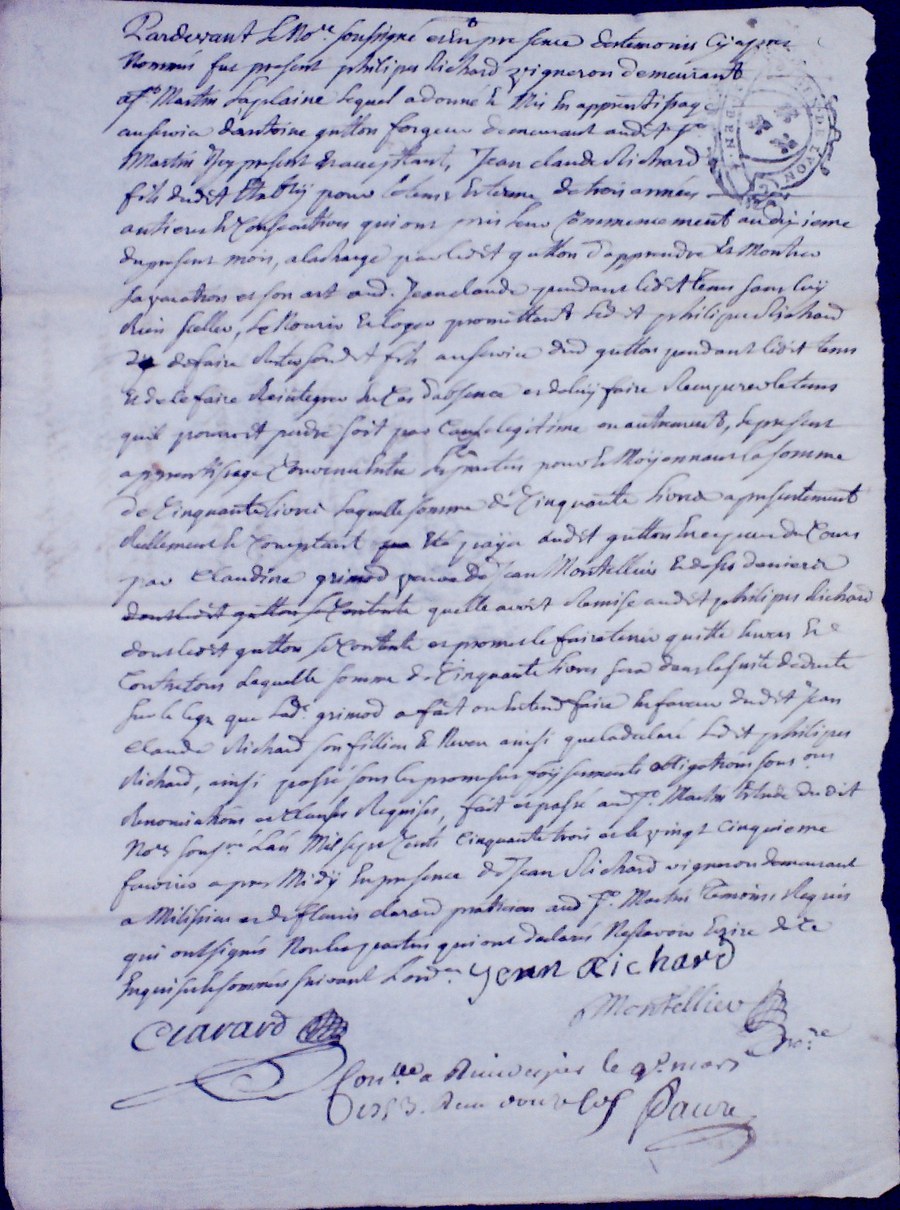 Pardevant le No.re soussigné et en presence des temoins cy apres
Nommés fut present philipes Richard vigneron demeurant
a s.t Martin Laplaine lequel a donné et Mis en apprentissage
au service d'antoine gutton forgeur demeurant audit s.t
Martin icy present et acceptant, Jean claude Richard
fils dudit pour le tems et terme de trois années
antieres et Consecutives qui ont pris leur Commencement au dixieme
du present mois, a la charge par ledit gutton d'apprendre et Montrer
sa vacation et son art aud. Jean claude pendant ledit tems sans luy
Rien sceller, le Nourir et loger promettant ledit philipes Richard
de faire son dit fils au service dud gutton pendant ledit tems
et de le faire Reintegrer en Cas d'absence et de luy faire Recuperer le tems
quil pourroit perdre soit par Cause legitime ou autrement, le present
apprentissage Convenu entre les parties pour et Moyennant la somme
de Cinquante livres laquelle somme de Cinquante livres a presentement
Reellement et Comptant eté payée audit gutton en especes de Cours
par Claudine grimod veuve de Jean Montellier et de ses deniers
dont ledit gutton se Contente quelle avoit Remise audit philipes Richard
dont ledit gutton se Contente et promet le faire tenir quitte envers et
Contre tous laquelle somme de Cinquante livres sera dans la suite deduite
sur le legs que lad.e grimod a fait ou entend faire en faveur dudit Jean
Claude Richard son fillieu et Neveu ainsi que la declaré ledit philipes
Richard, ainsi passé sous les promesses serments obligations sous.ons
Renonciations et clauses Requises, fait et passé aud s.t Martin etude dudit
No.re souss.né L'an Mil sept Cents Cinquante trois et le vingt Cinquieme
fevrier apres Midy En presence de Jean Richard vigneron demeurant
a Milisieu et de fleuris clavard praticien aud s.t Martin temoins Requis
qui ont signés Non les parties qui ont declarés Ne scavoir Ecrire de Ce
Enquis et sommés suivant Lord.ce Jean Richard
Montellier
Clavard No.re
Con.lle a Rivedegier le 9e mars
1753. Reçu douze sols faure